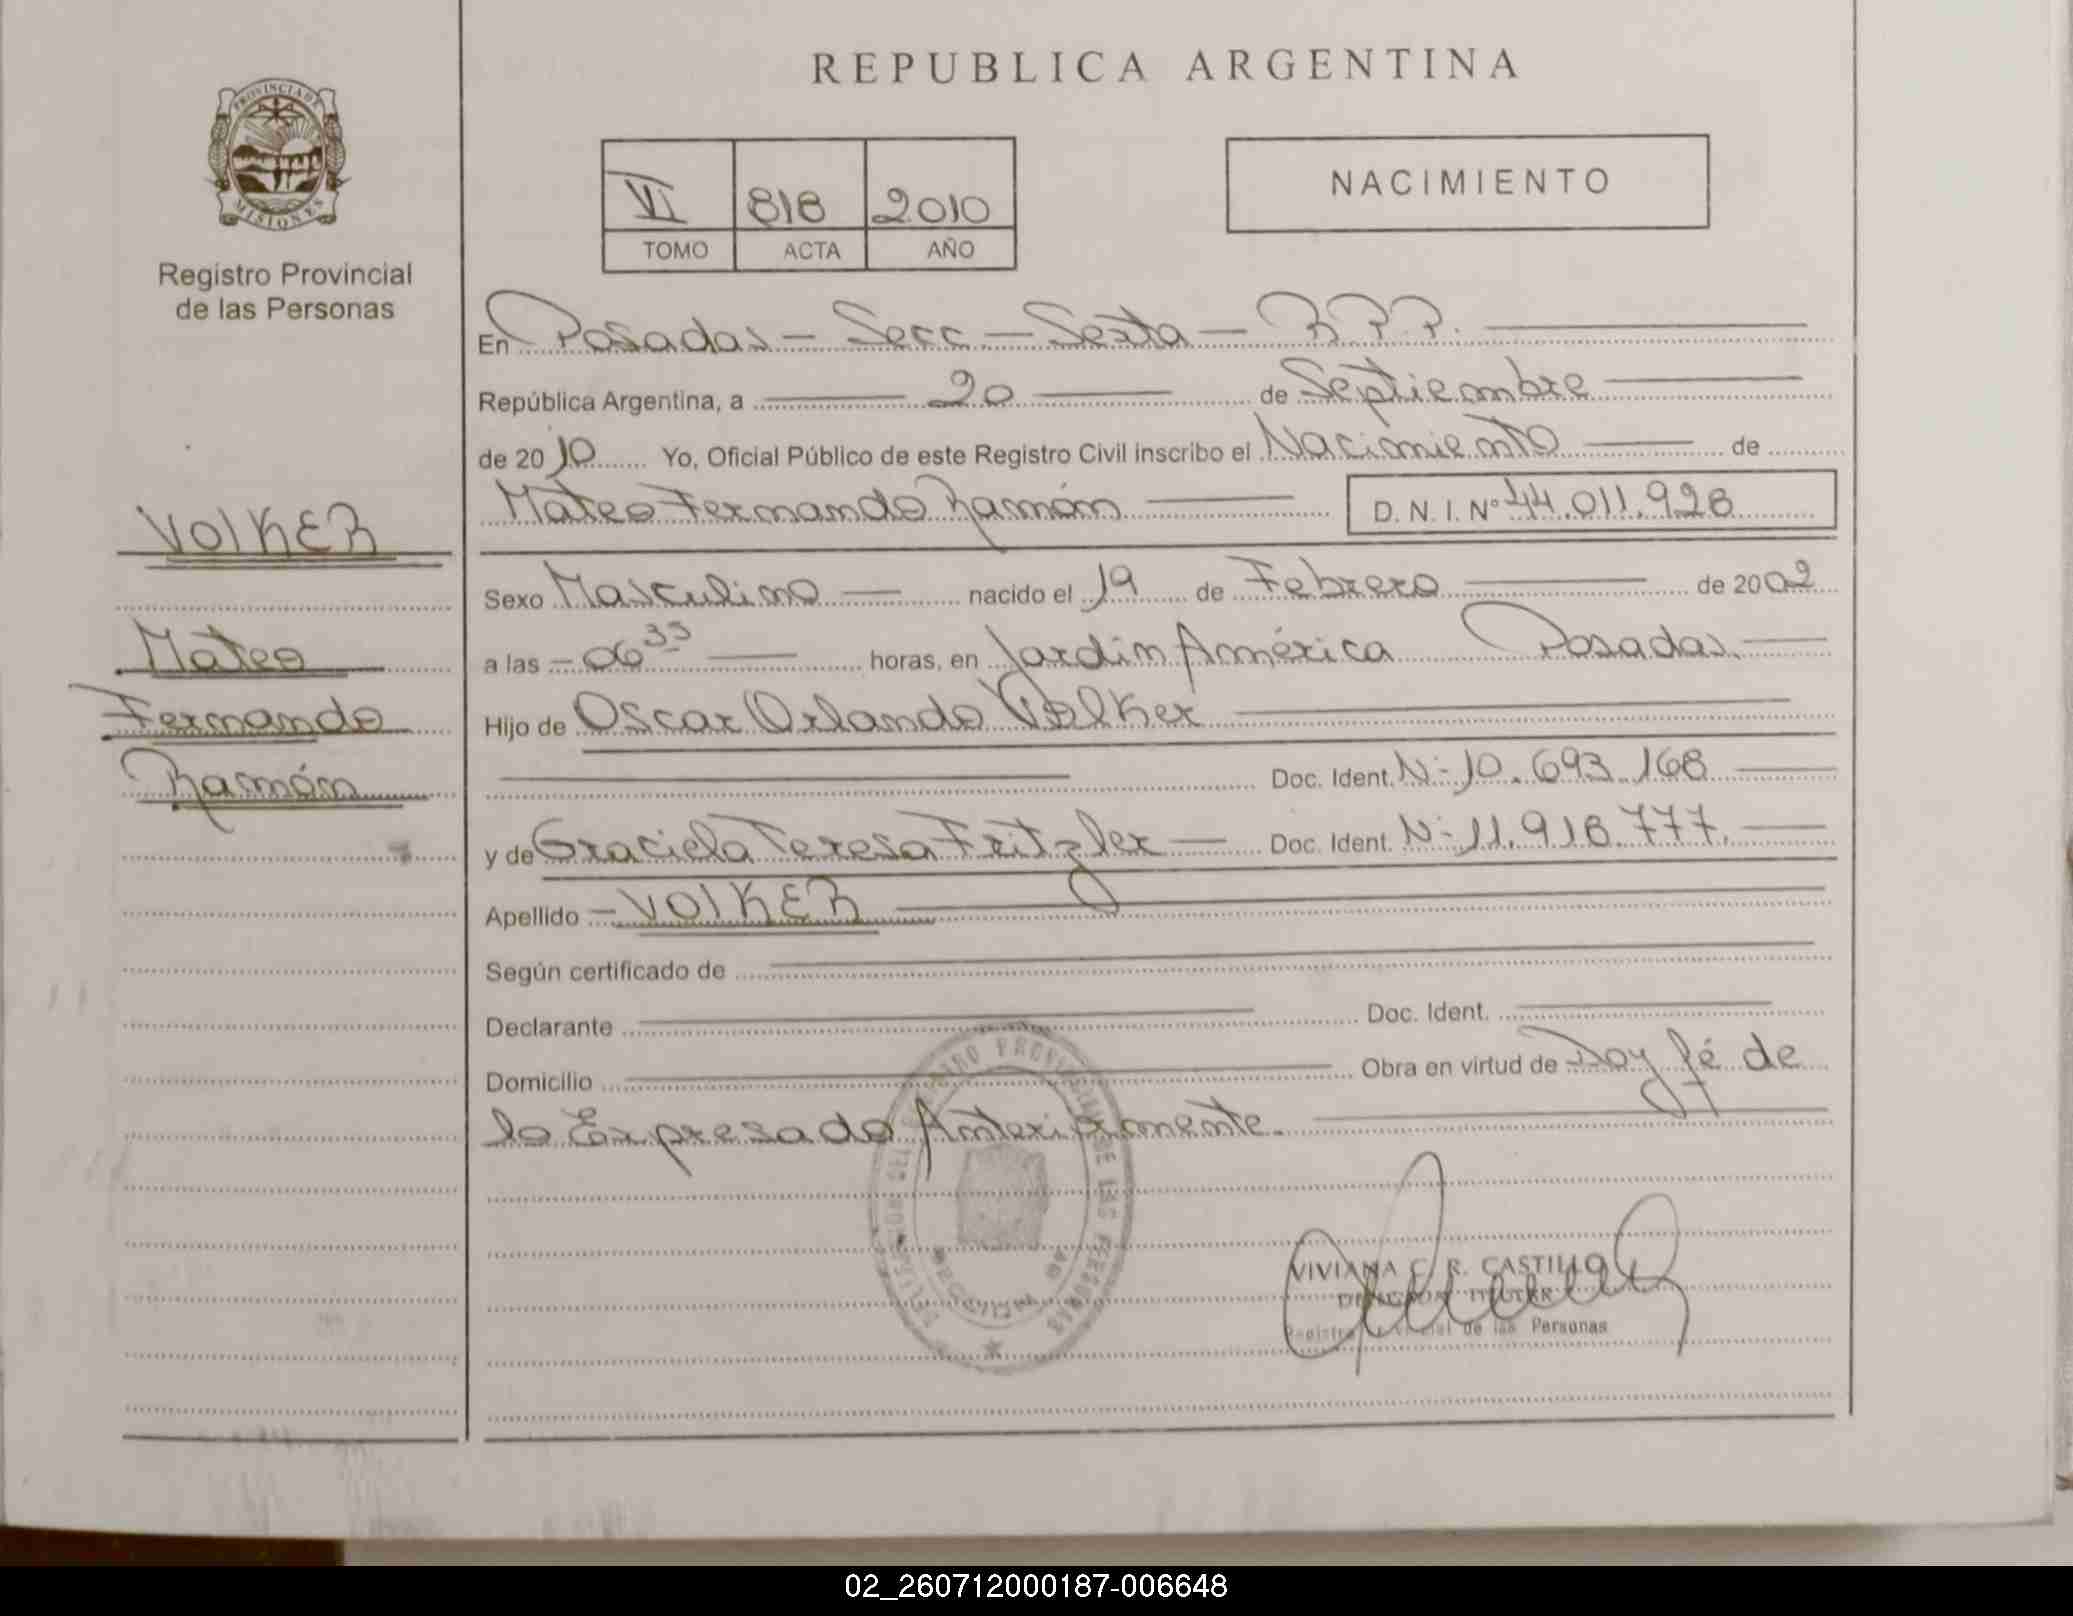 REPUBLICA ARGENTINA
PROVINCIA DE
MISIONES
Registro Provincial
de las Personas
VI 818 2010
TOMO ACTA AÑO
NACIMIENTO
En Posadas - Secc - Sexta - R.P.P.
República Argentina, a 20 de Septiembre
de 2010 Yo, Oficial Público de este Registro Civil inscribo el Nacimiento de
Mateo Fernando Ramón D. N. I. Nº 44.011.928
VOlKER
Mateo
Fernando
Ramón
Sexo Masculino nacido el 19 de Febrero de 2002
a las - 06 35 horas, en Jardin América Posadas.
Hijo de Oscar Orlando Volker
Doc. Ident. Nº 10.693.168
y de Graciela Teresa Fritzler Doc. Ident. Nº 11.918.777.
Apellido - VOlKER
Según certificado de
Declarante Doc. Ident.
Domicilio Obra en virtud de Doy fé de
lo Expresado Anteriormente.
REGISTRO PROVINCIAL DE LAS PERSONAS
VIVIANA C. R. CASTILLO
de las Personas
02_260712000187-006648